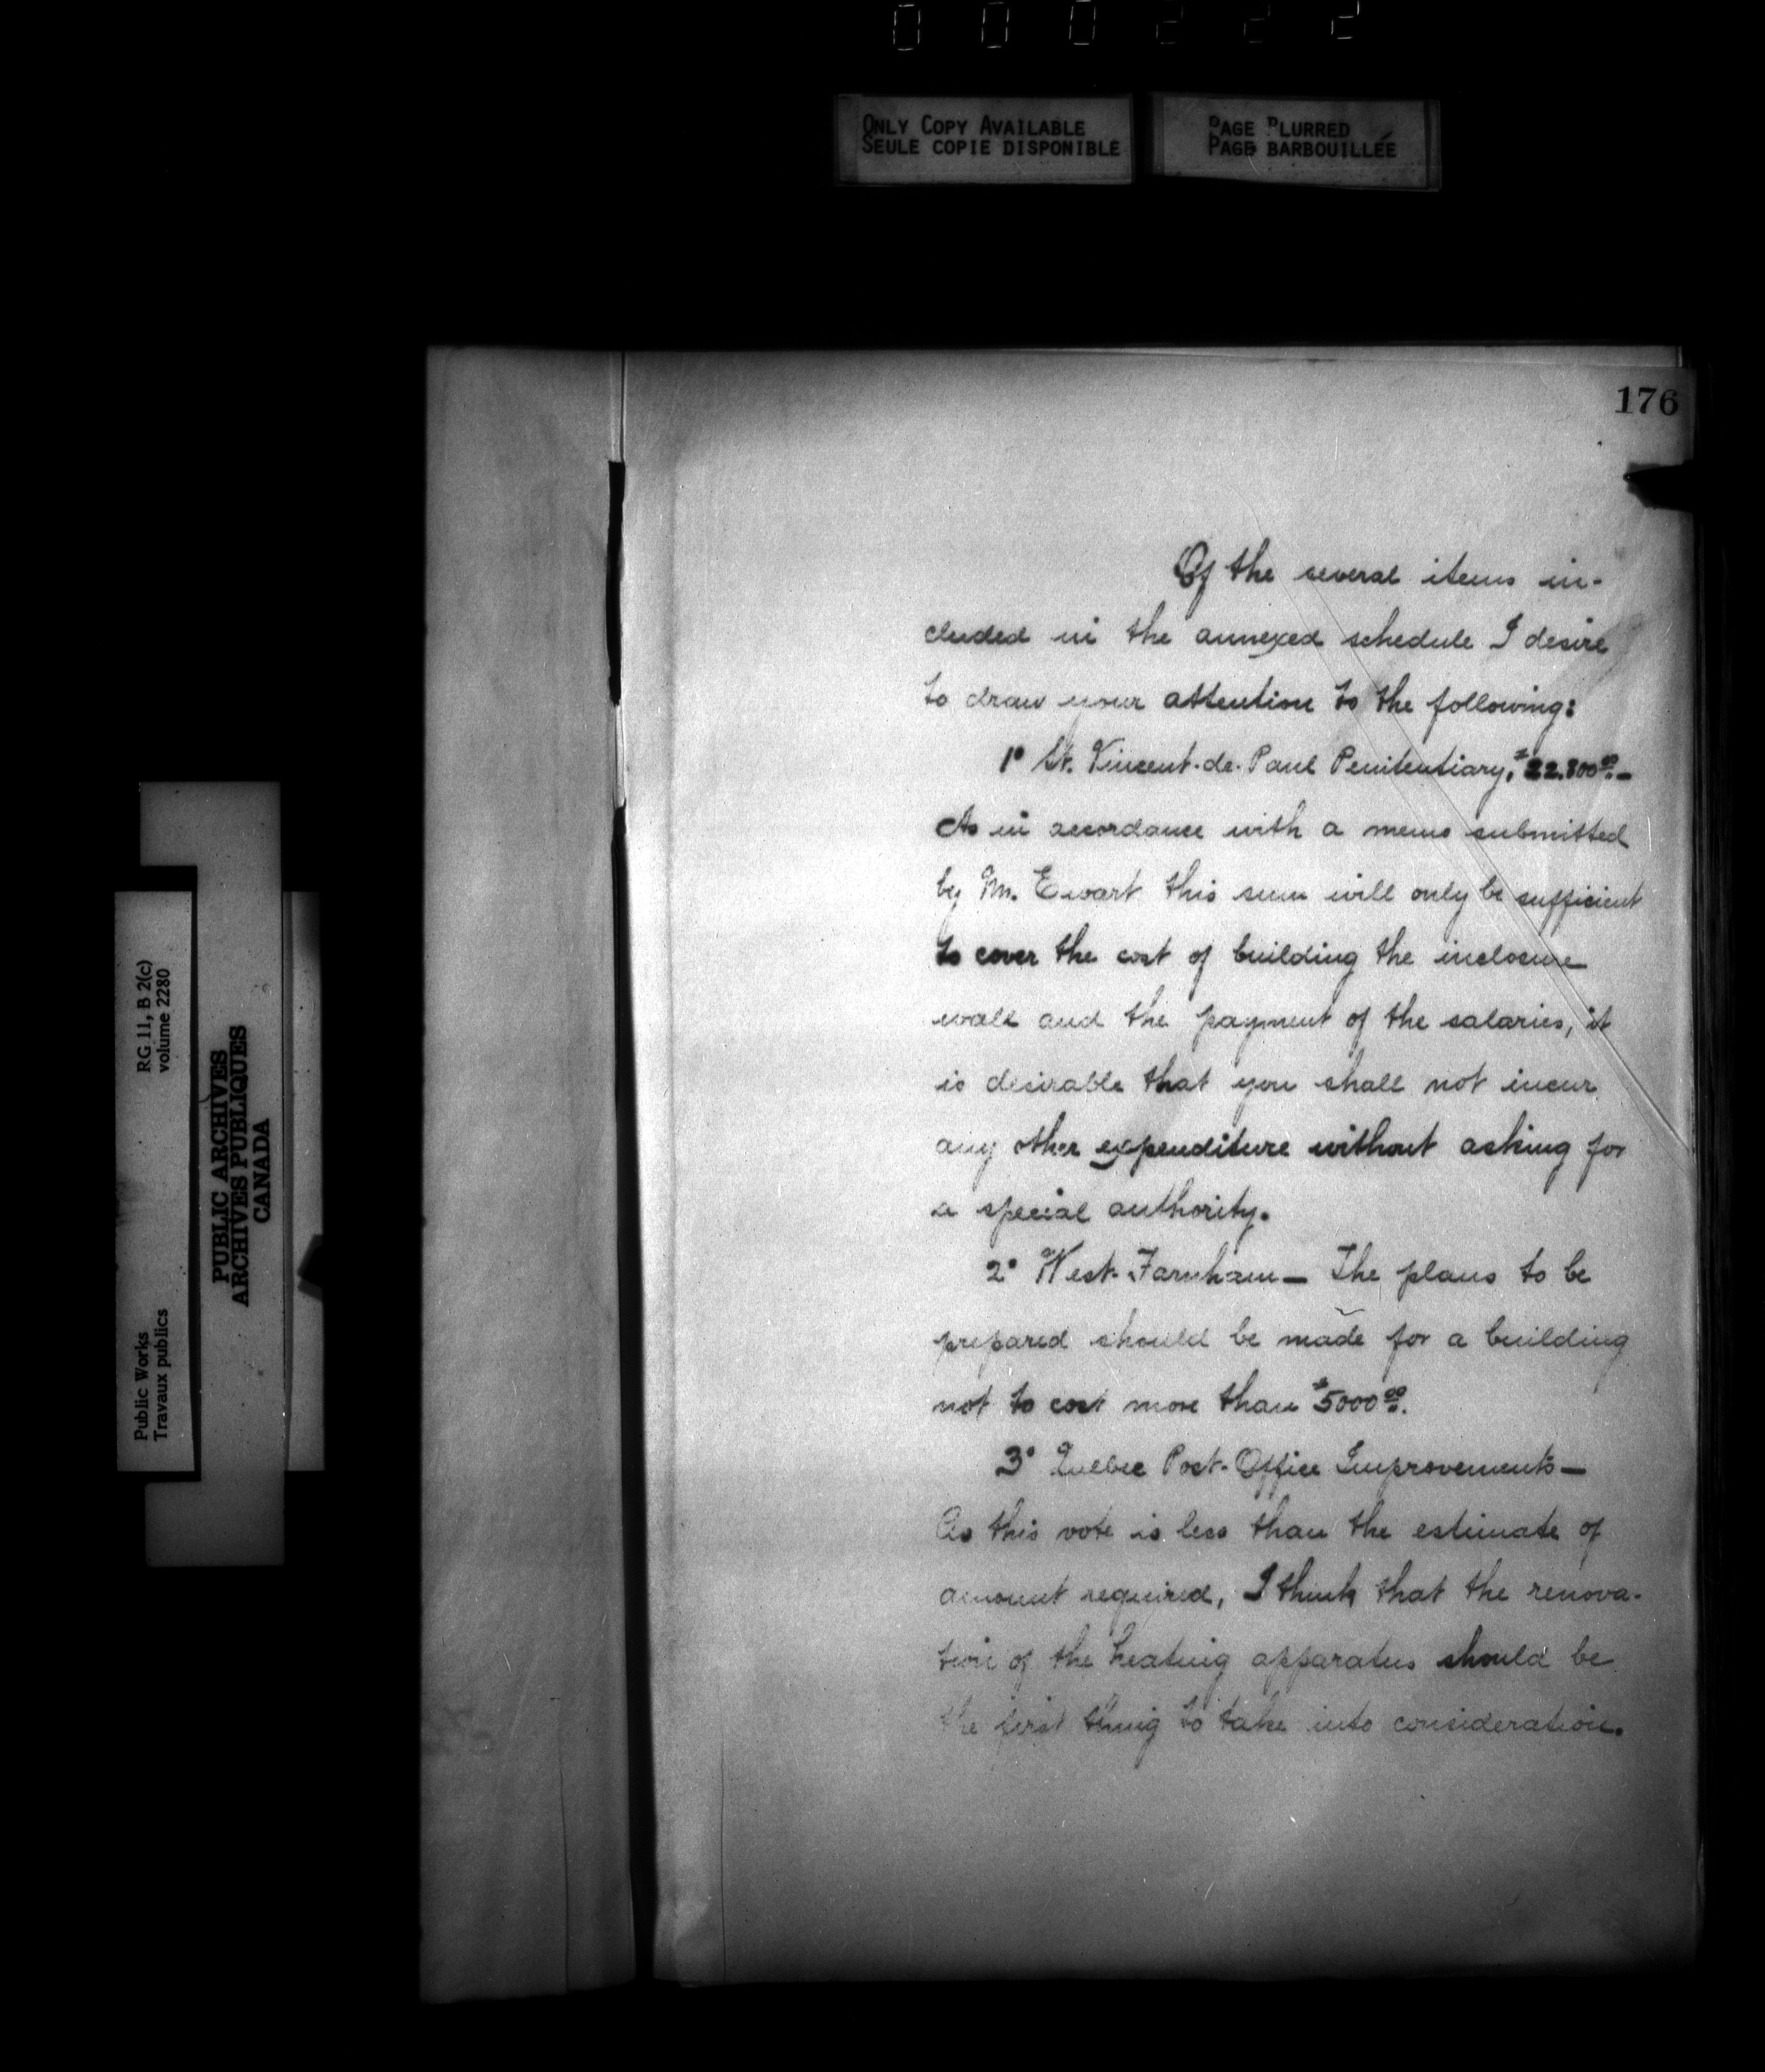 000222
ONLY COPY AVAILABLE
SEULE COPIE DISPONIBLE
PAGE BLURRED
PAGE BARBOUILLÉE
176
Of the several items in-
cluded in the annexed schedule I desire
to draw your attention to the following:
1° St. Vincent-de-Paul Penitentiary, $22.800.00.—
As in accordance with a memo submitted
by Mr. Ewart this sum will only be sufficient
to cover the cost of building the inclosure
wall and the payment of the salaries, it
is desirable that you shall not incur
any other expenditure without asking for
a special authority.
2° West-Farnham— The plans to be
prepared should be made for a building
not to cost more than $5000.00.
3° Quebec Post-Office Improvements—
As this vote is less than the estimate of
amount required, I think that the renova-
tion of the heating apparatus should be
the first thing to take into consideration.
RG 11, B 2(c)
volume 2280
Public Works
Travaux publics
PUBLIC ARCHIVES
ARCHIVES PUBLIQUES
CANADA